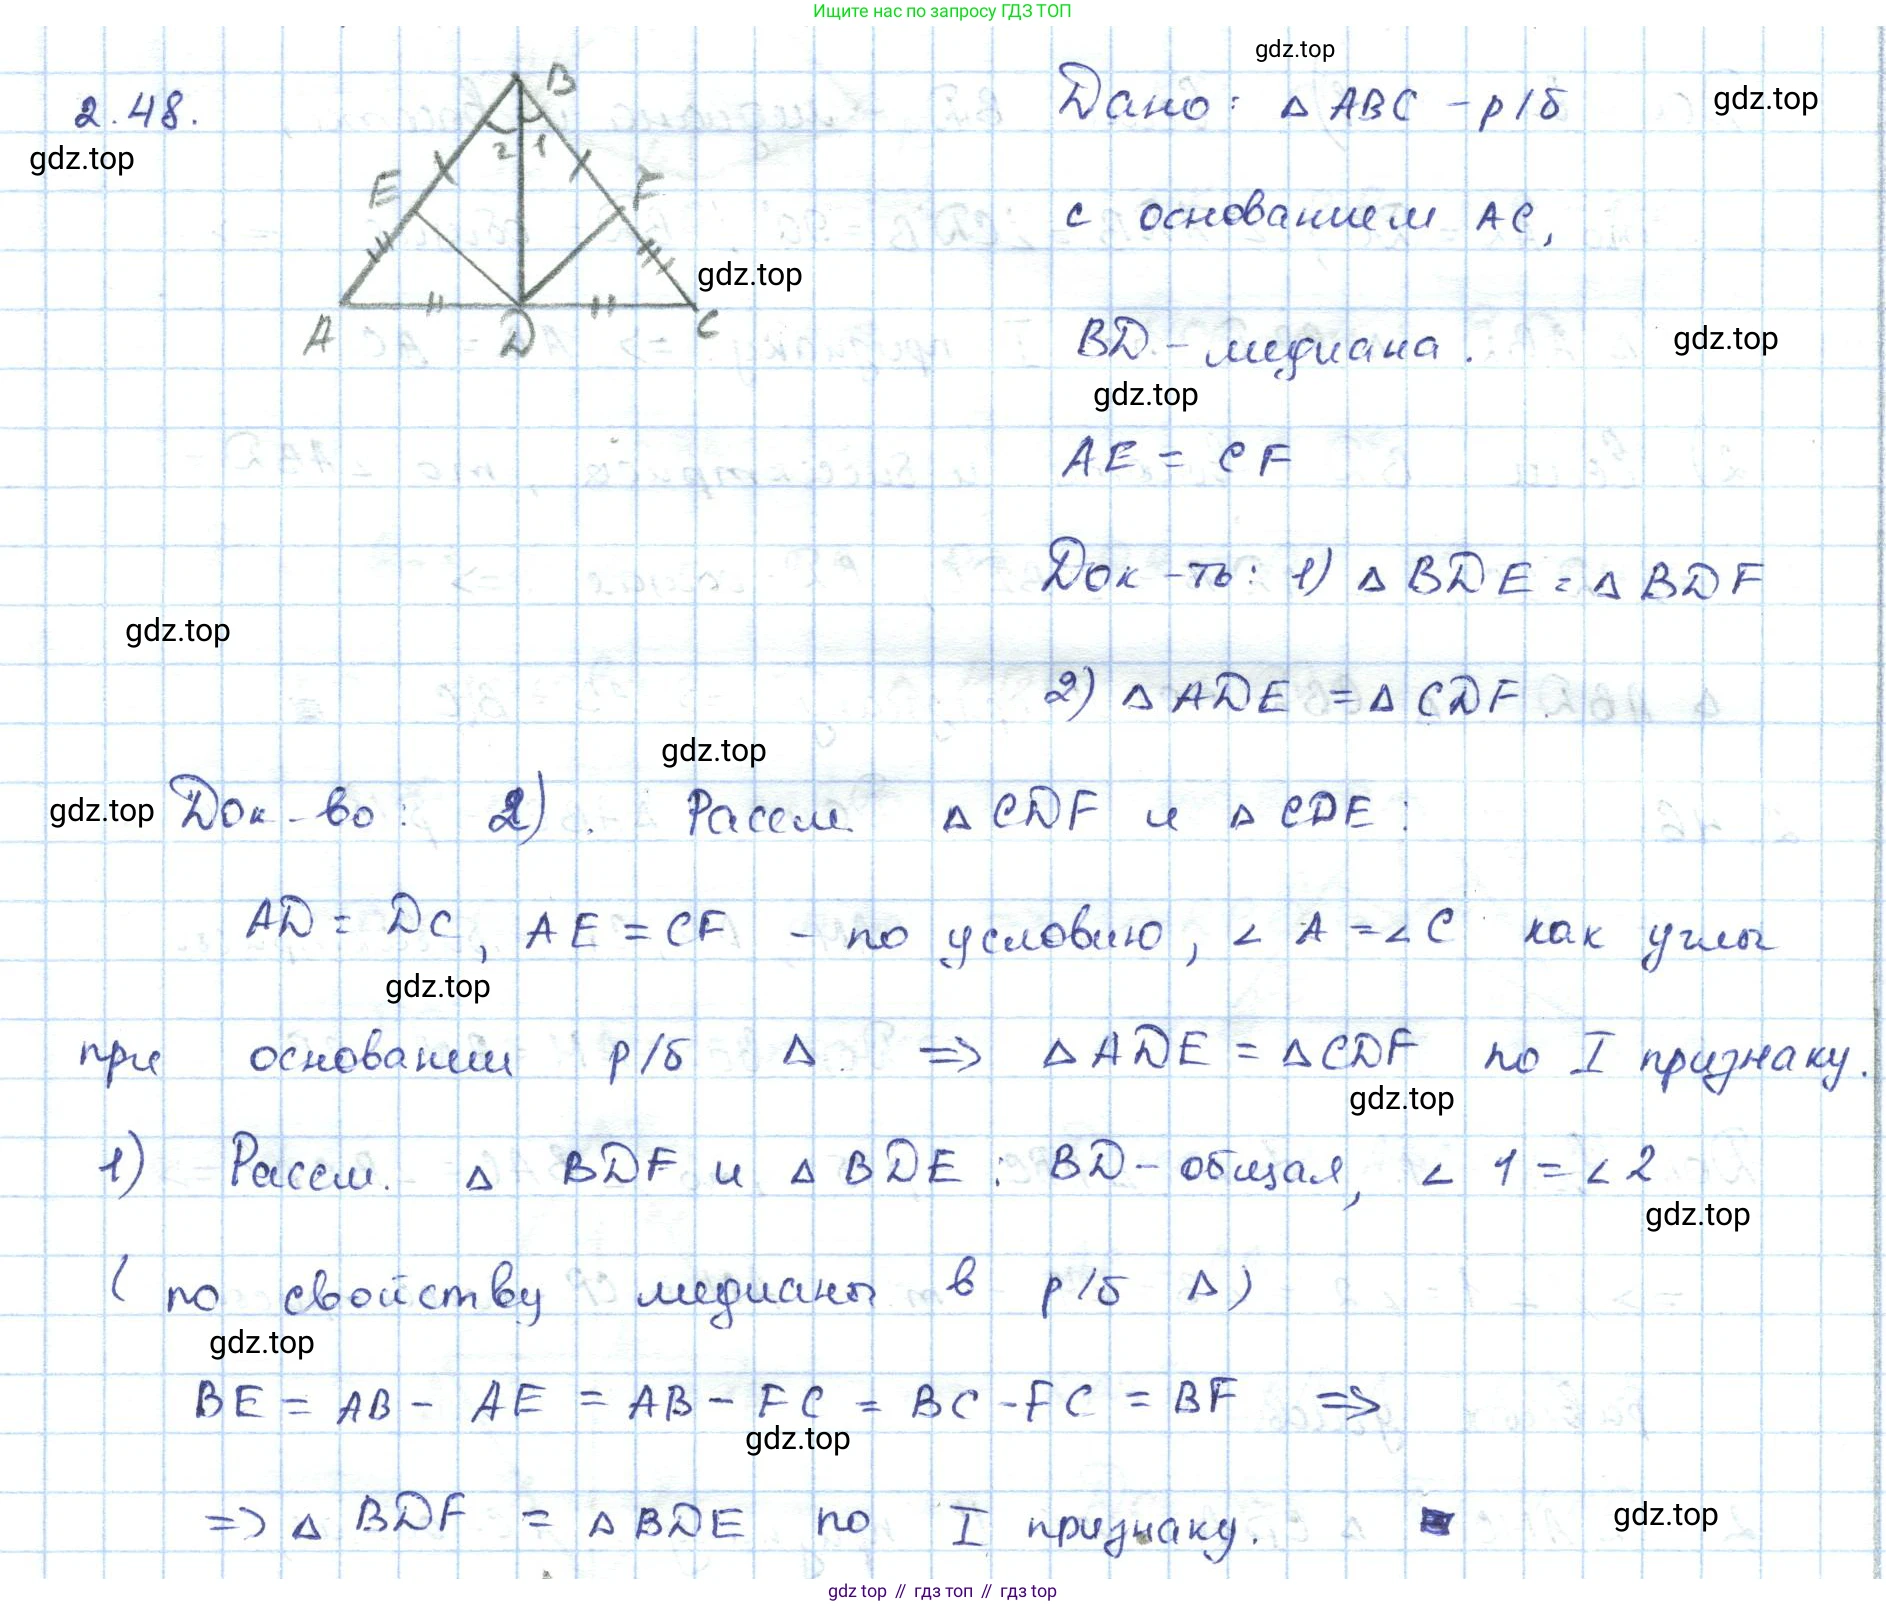 Ищите нас по запросу ГДЗ ТОП
gdz.top
2.48.
gdz.top
B
2 1
E F
A D C
gdz.top
Дано: Δ ABC - р/б
gdz.top
с основанием AC,
BD - медиана.
gdz.top
gdz.top
AE = CF
Док-ть: 1) Δ BDE = Δ BDF
gdz.top
2) Δ ADE = Δ CDF
gdz.top
gdz.top
Док-во: 2). Рассм. Δ CDF и Δ CDE:
AD = DC, AE = CF - по условию, ∠ A = ∠ C как углы
gdz.top
при основании р/б Δ => Δ ADE = Δ CDF по I признаку.
gdz.top
1) Рассм. Δ BDF и Δ BDE: BD - общая, ∠ 1 = ∠ 2
gdz.top
( по свойству медианы в р/б Δ)
gdz.top
BE = AB - AE = AB - FC = BC - FC = BF =>
gdz.top
=> Δ BDF = Δ BDE по I признаку.
gdz.top
gdz top // гдз топ // гдз top